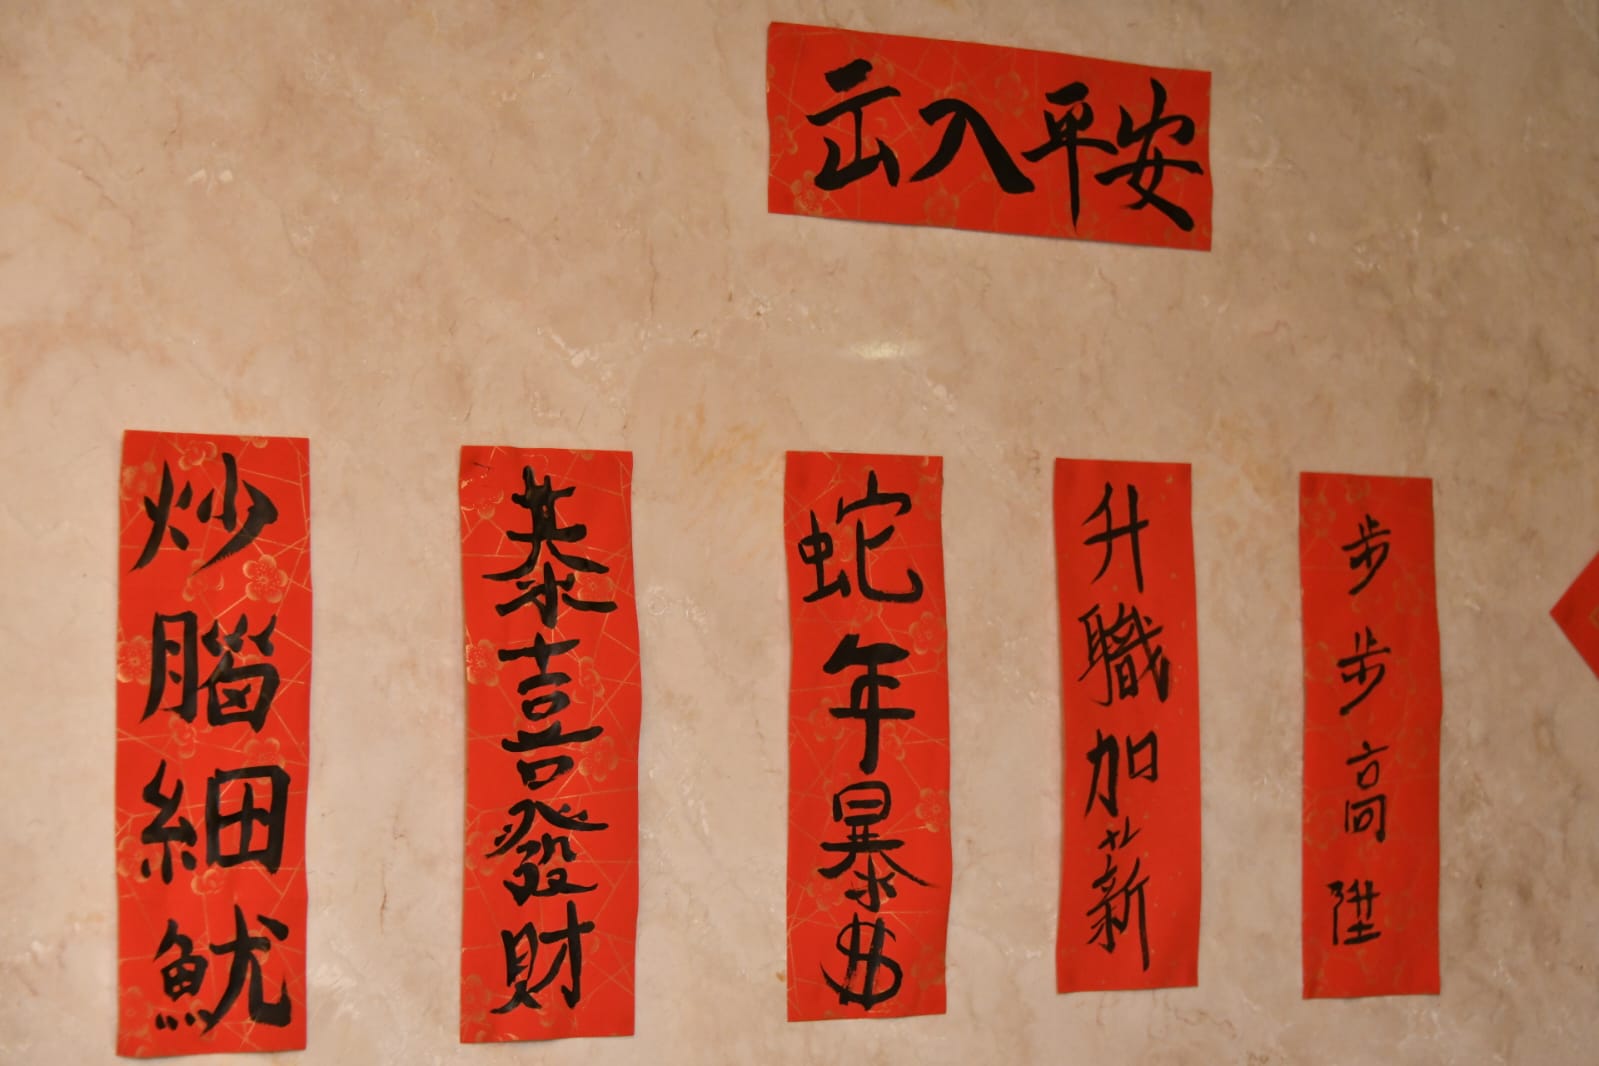 出入平安
炒腦細魷
恭喜發財
蛇年暴$
升職加薪
步步高陞